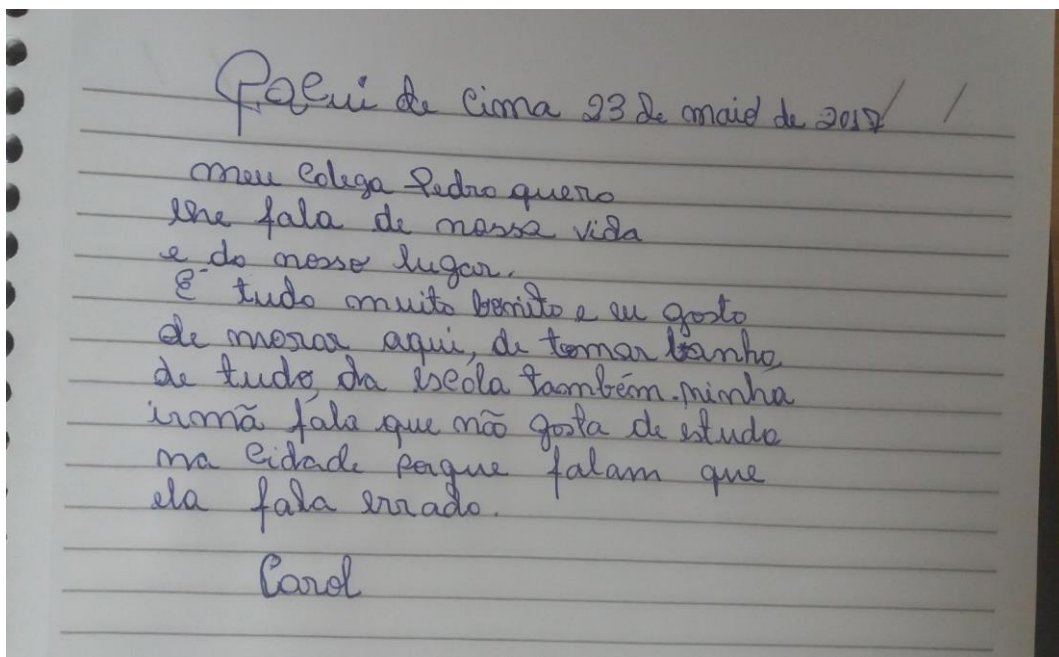 de cima 23 de maio de 2017
meu colega Pedro quero
lhe fala de nossa vida
e do nosso lugar.
É tudo muito bonito e eu gosto
de morar aqui, de tomar banho,
de tudo, da escola também. minha
irmã fala que não gosta de estuda
na cidade porque falam que
ela fala errado.
Carol